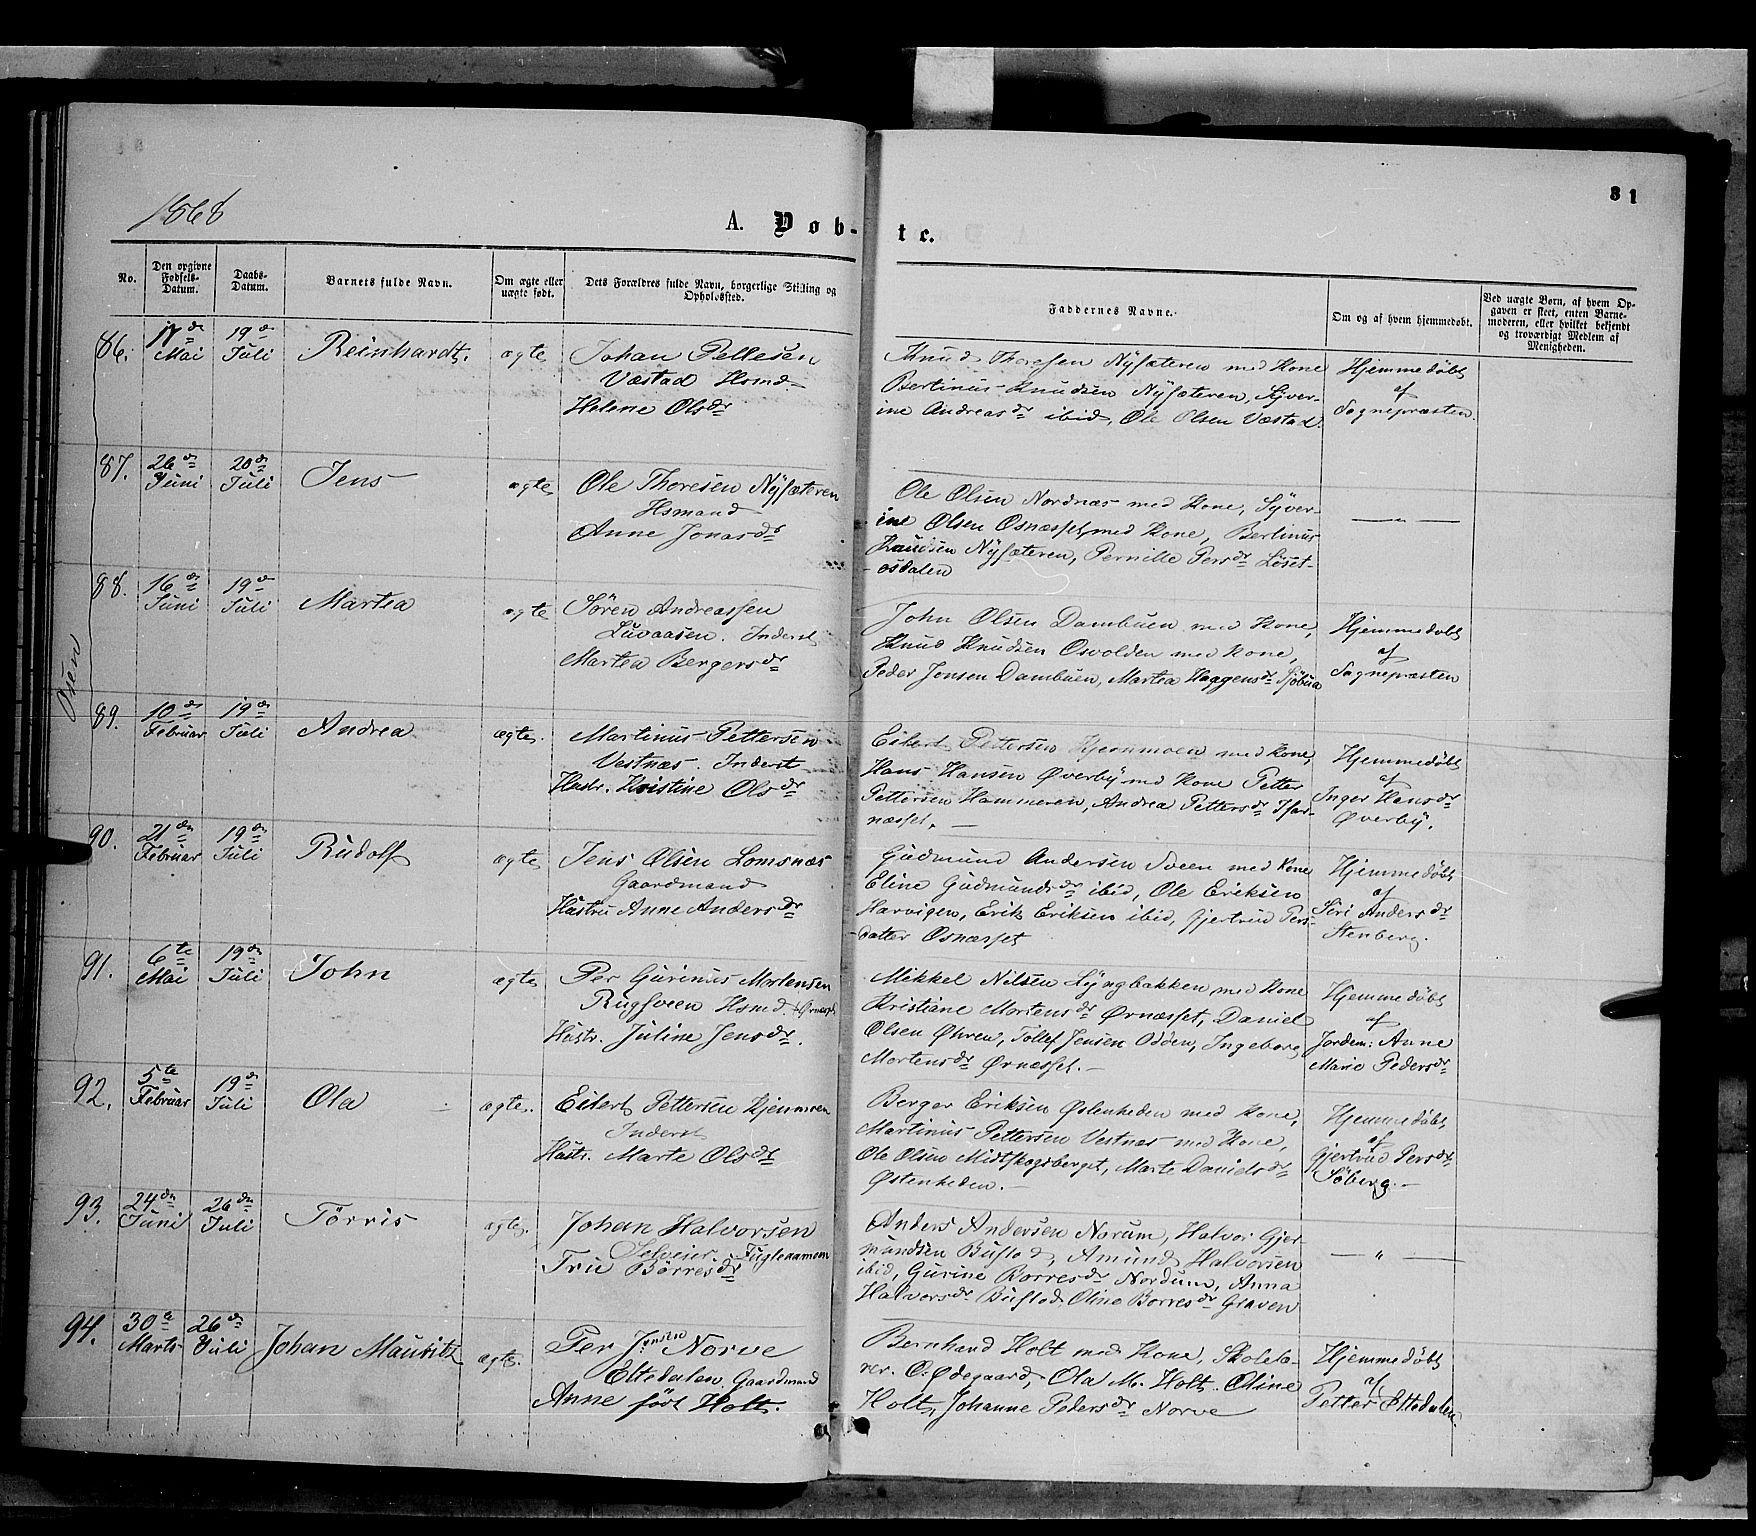 31
1868
A. Døbte.
No.
Den opgivne Fødsels-Datum.
Daabs-Datum.
Barnets fulde Navn.
Om ægte eller uægte født.
Dets Forældres fulde Navn, borgerlige Stilling og Opholdssted.
Faddernes Navne.
Om og af hvem hjemmedøbt.
Ved uægte Børn, af hvem Opgaven er skeet, enten Barnemoderen, eller hvilket bekjendt og troværdigt Medlem af Menigheden.
Osen
86. 17de Mai 19de Juli Reinhardt. ægte
Johan Pellesen
Væstad Hsmd.
Helene Olsdr
Knud Thoresen Nysæteren med Kone
Bertinus Knudsen Nysæteren, Syver-
ine Andreasdr ibid, Ole Olsen Væstad.
Hjemmedøbt
af
Sognepræsten.
87. 26de Juni 20de Juli Jens ægte
Ole Thoresen Nysæteren
Hsmand
Anne Jonasdr
Ole Olsen Nordnæs med Kone, Syver-
ine Olsen Osnæsset med Kone, Bertinus
Knudsen Nysæteren, Pernille Persdr Løset-
osdalen
— " —
88. 16de Juni 19de Juli Martea ægte
Søren Andreassen
Luvaasen. Inderst
Martea Bergersdr
John Olsen Dambuen med Kone,
Knud Knudsen Osvolden med Kone,
Peder Jonsen Dambuen, Martea Haagensdr Sjøbua
Hjemmedøbt
af
Sognepræsten
89. 10de Februar 19de Juli Andrea ægte.
Martinus Pettersen
Vestnæs. Inderst
Hustr. Kristine Olsdr
Eilert Pettersen Kjernmoen med Kone,
Hans Hansen Øverby med Kone Petter
Pettersen Hammeren, Andrea Pettersdr
næsset. —
Hjemmedøbt
af
Inger Hansdr
Øverby.
90. 21den Februar 19de Juli Rudolf ægte
Jens Olsen Lomsnæs
Gaardmand
Hustru Anne Andersdr
Gudmund Andersen Sveen med Kone
Eline Gudmundsdr ibid, Ole Eriksen
Harvigen, Erik Eriksen ibid, Gjertrud Pers-
datter Osnæsset
Hjemmedøbt
af
Siri Andersdr
Stenberg.
91. 6te Mai 19de Juli John ægte
Per Gurinus Mortensen
Rugsveen Hsmd. Ørnæsset
Hustr. Juline Jensdr.
Mikkel Nilsen Lyngbakken med Kone
Kristiane Mortensdr Ørnæsset, Daniel
Olsen Øhren, Tollef Jensen Odden, Ingeborg
Mortensdr Ørnæsset. —
Hjemmedøbt
af
Jordem: Anne
Marie Pedersdr
92. 5te Februar 19de Juli Ola ægte.
Eilert Pettersen Kjernmoen
Inderst
Hustr. Marte Olsdr
Berger Eriksen Østenheden med Kone,
Martinus Pettersen Vestnæs med Kone,
Ole Olsen Midtskogsberget, Marte Danielsdr
Østenheden. —
Hjemmedøbt
af
Gjertrud Persdr
Søberg. —
93. 24den Juni 26den Juli Tørris ægte.
Johan Halvorsen
Selveier Fuglenamoen
Trie Børresdr
Anders Andersen Norum, Halvor Gjer-
mundsen Bufled, Amund Halvorsen
ibid, Gurine Børresdr Nordum, Anna
Halvorsdr Bufled, Oline Børresdr Graven
— " —
94. 30te Marts 26de Juli Johan Mauritz ægte.
Per Jensen Norve
Eltedalen Gaardmand
Anne født Holt.
Bernhard Holt med Kone, Skolelæ-
rer. O. Ødegaard, Ola M. Holt. Oline
Holt, Johanne Pedersdr Norve
Hjemmedøbt
af
Petter Eltedalen.